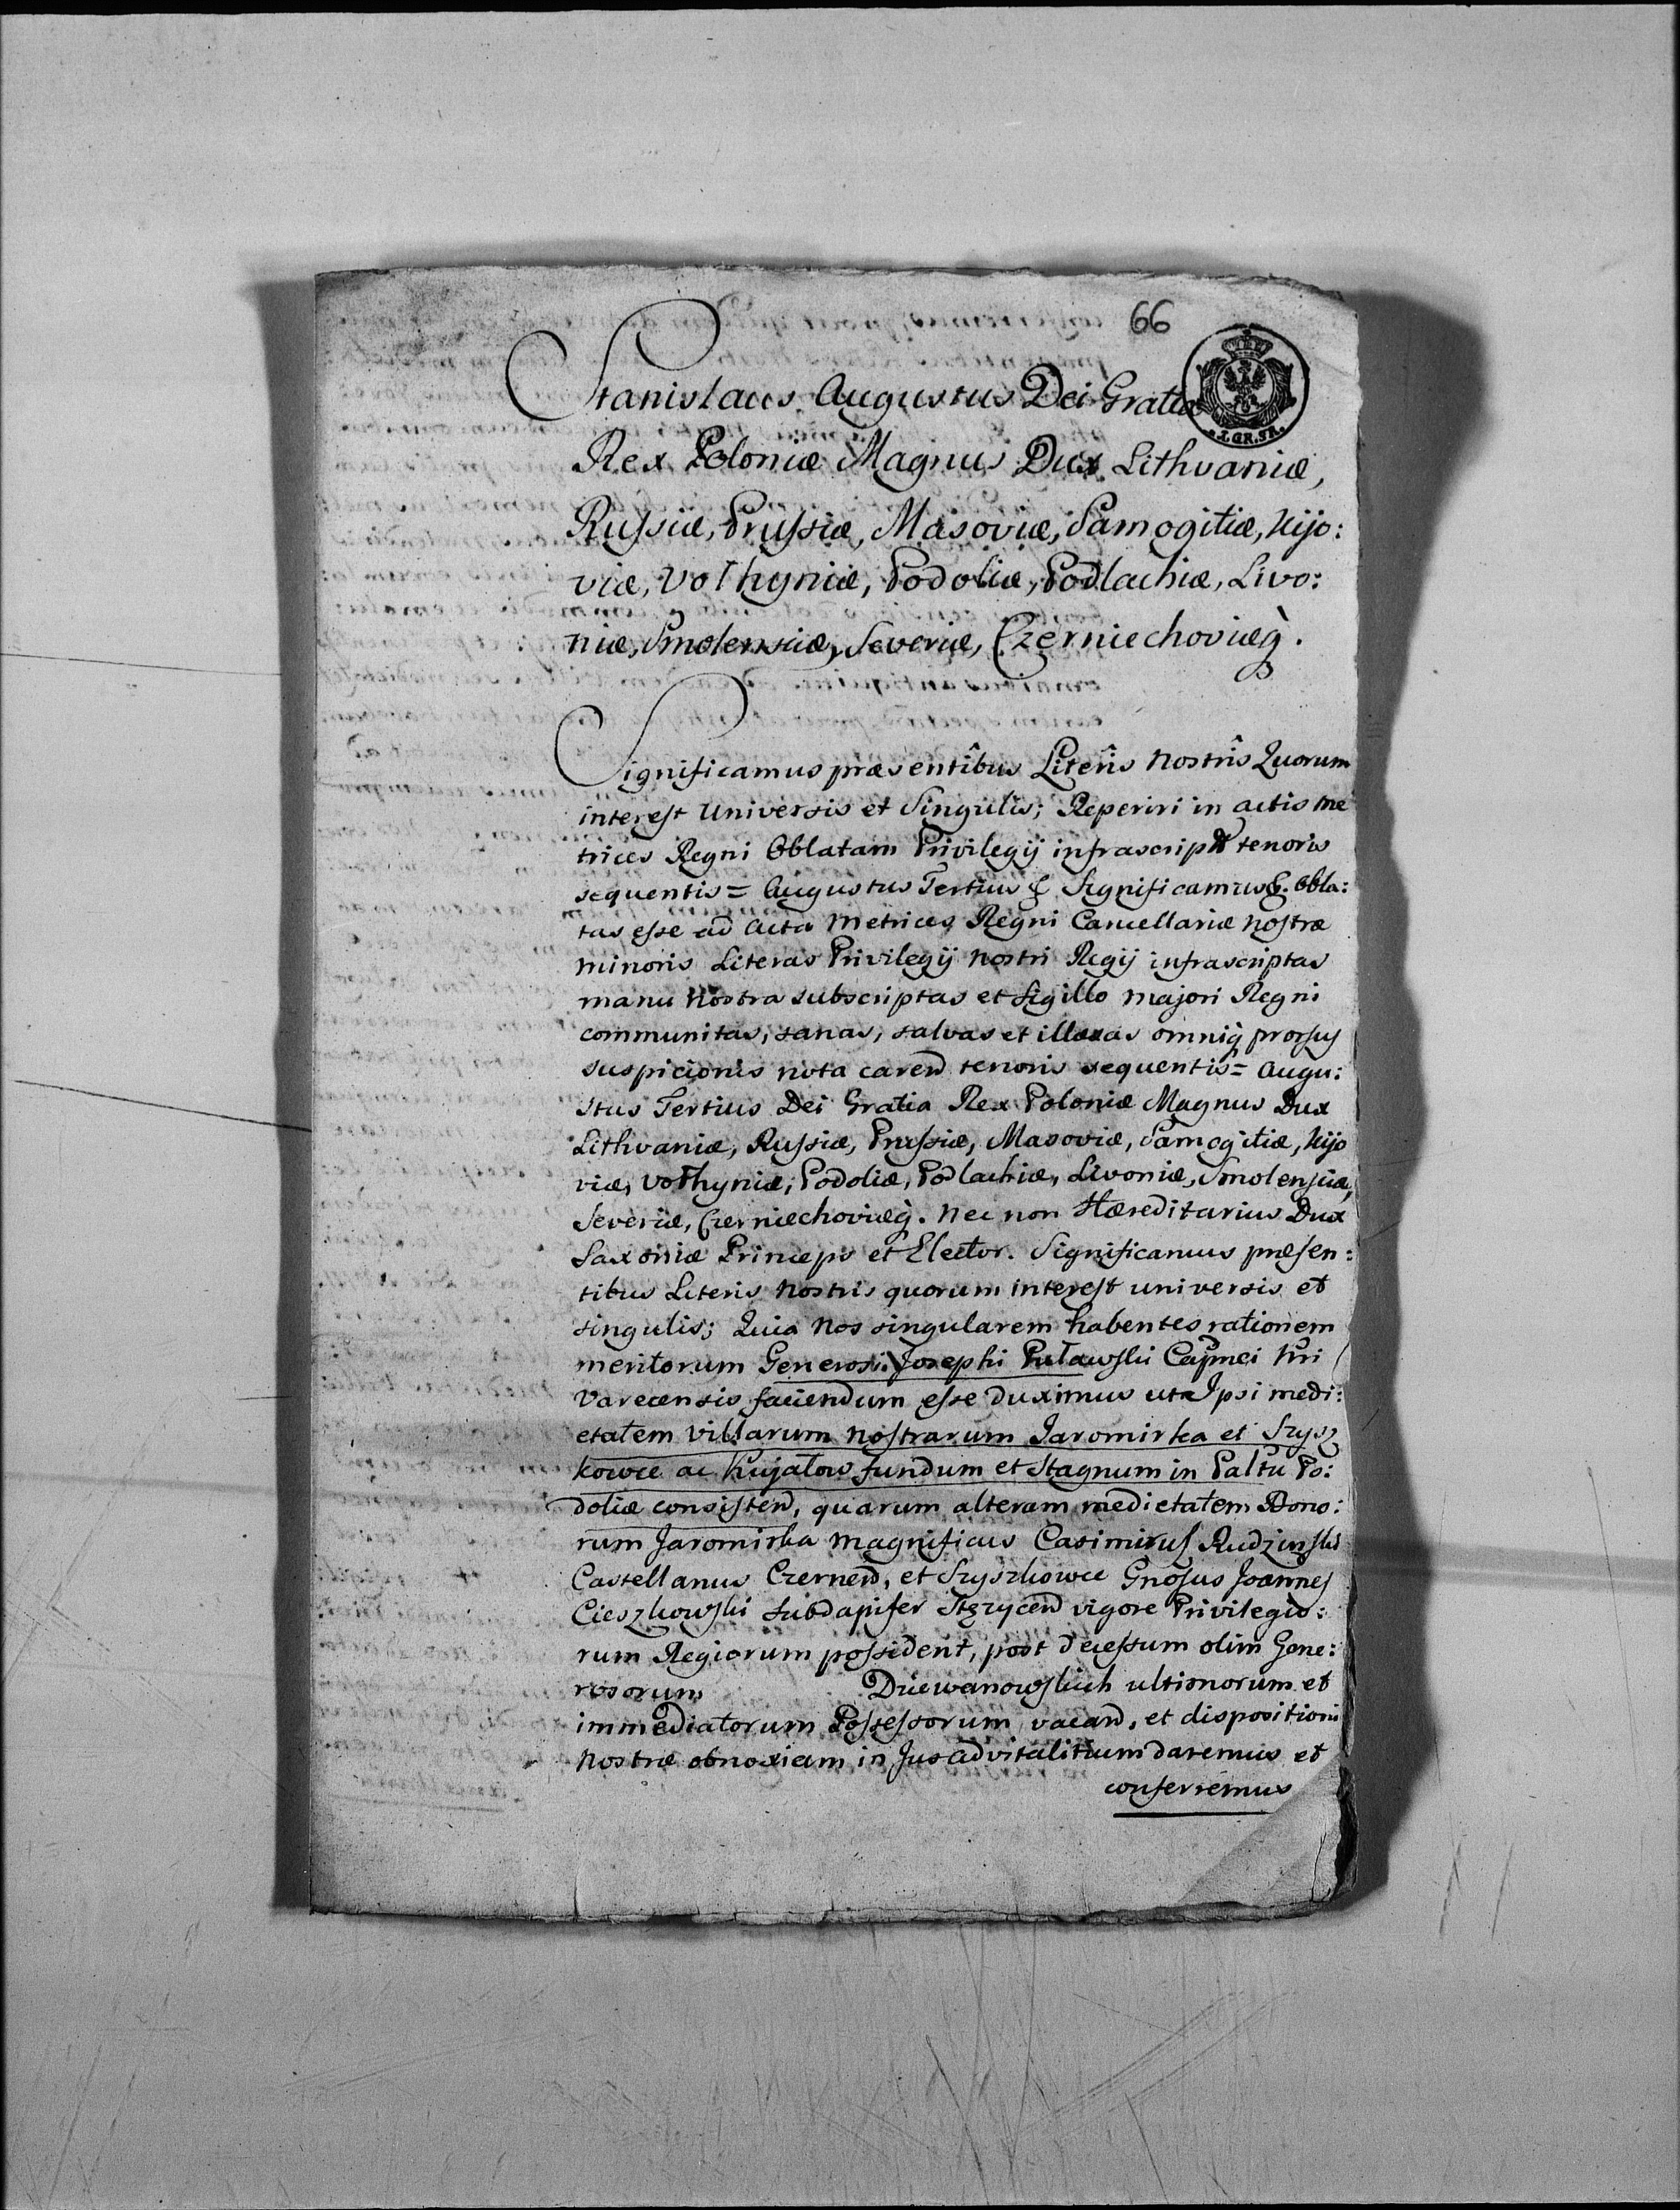 66
Stanislaus Augustus Dei Gratia
1.GR.SR.
Rex Poloniæ Magnus Dux Lithvaniæ,
Russiæ, Prussiæ, Masoviæ, Samogitiæ, Kijo:
viæ, Volhyniæ, Podoliæ, Podlachiæ, Livo:
niæ, Smolensciæ, Severiæ, Czerniechoviæq̀.
Significamus præsentîbus Literîs Nostrîs Quorum
interest Universis et Singulis; Reperiri in actis me
trices Regni Oblatam Privilegij infrascripti tenoris
sequentis = Augustus Tertius & Significamus &. Obla:
tas esse ad Acta Metrices Regni Cancellariæ Nostræ
minoris Literas Privilegij Nostri Regij infrascriptas
manu Nostra subscriptas et Sigillo majori Regni
communitas, sanas, salvas et illæsas omniq̀ prorsus
suspicionis nota caren̄ tenoris sequentis = Augu:
stus Tertius Dei Gratia Rex Poloniæ Magnus Dux
Lithvaniæ, Russiæ, Prussiæ, Masoviæ, Samogitiæ, Kijo
viæ, Volhyniæ, Podoliæ, Podlachiæ, Livoniæ, Smolensciæ,
Severiæ, Czerniechoviæq̀. Nec non Hæreditarius Dux
Saxoniæ Princeps et Elector. Significamus præsen:
tibus Literis Nostris quorum interest universis et
singulis; Quia Nos singularem habentes rationem
meritorum Generosi Josephi Puławski Capnei Nri
Varecensis faciendum esse duximus ut Ipsi medi:
etatem Villarum Nostrarum Jaromirka et Szysz
kowce ac Kujałow fundum et Stagnum in Pałtu Po:
doliæ consisten̄, quarum alteram medietatem Bono:
rum Jaromirka Magnificus Casimirus Rudzinski
Castellanus Czernen̄, et Szyszkowce Gnosus Joannes
Cieszkowski Subdapifer Stęzycen̄ vigore Privilegio:
rum Regiorum possident, post decessum olim Gene:
rosorum Drzewanowskich ultimorum et
immediatorum Possessorum vacan̄, et dispositioni
Nostræ obnoxiam in Jus advitalitium daremus et
conferremus